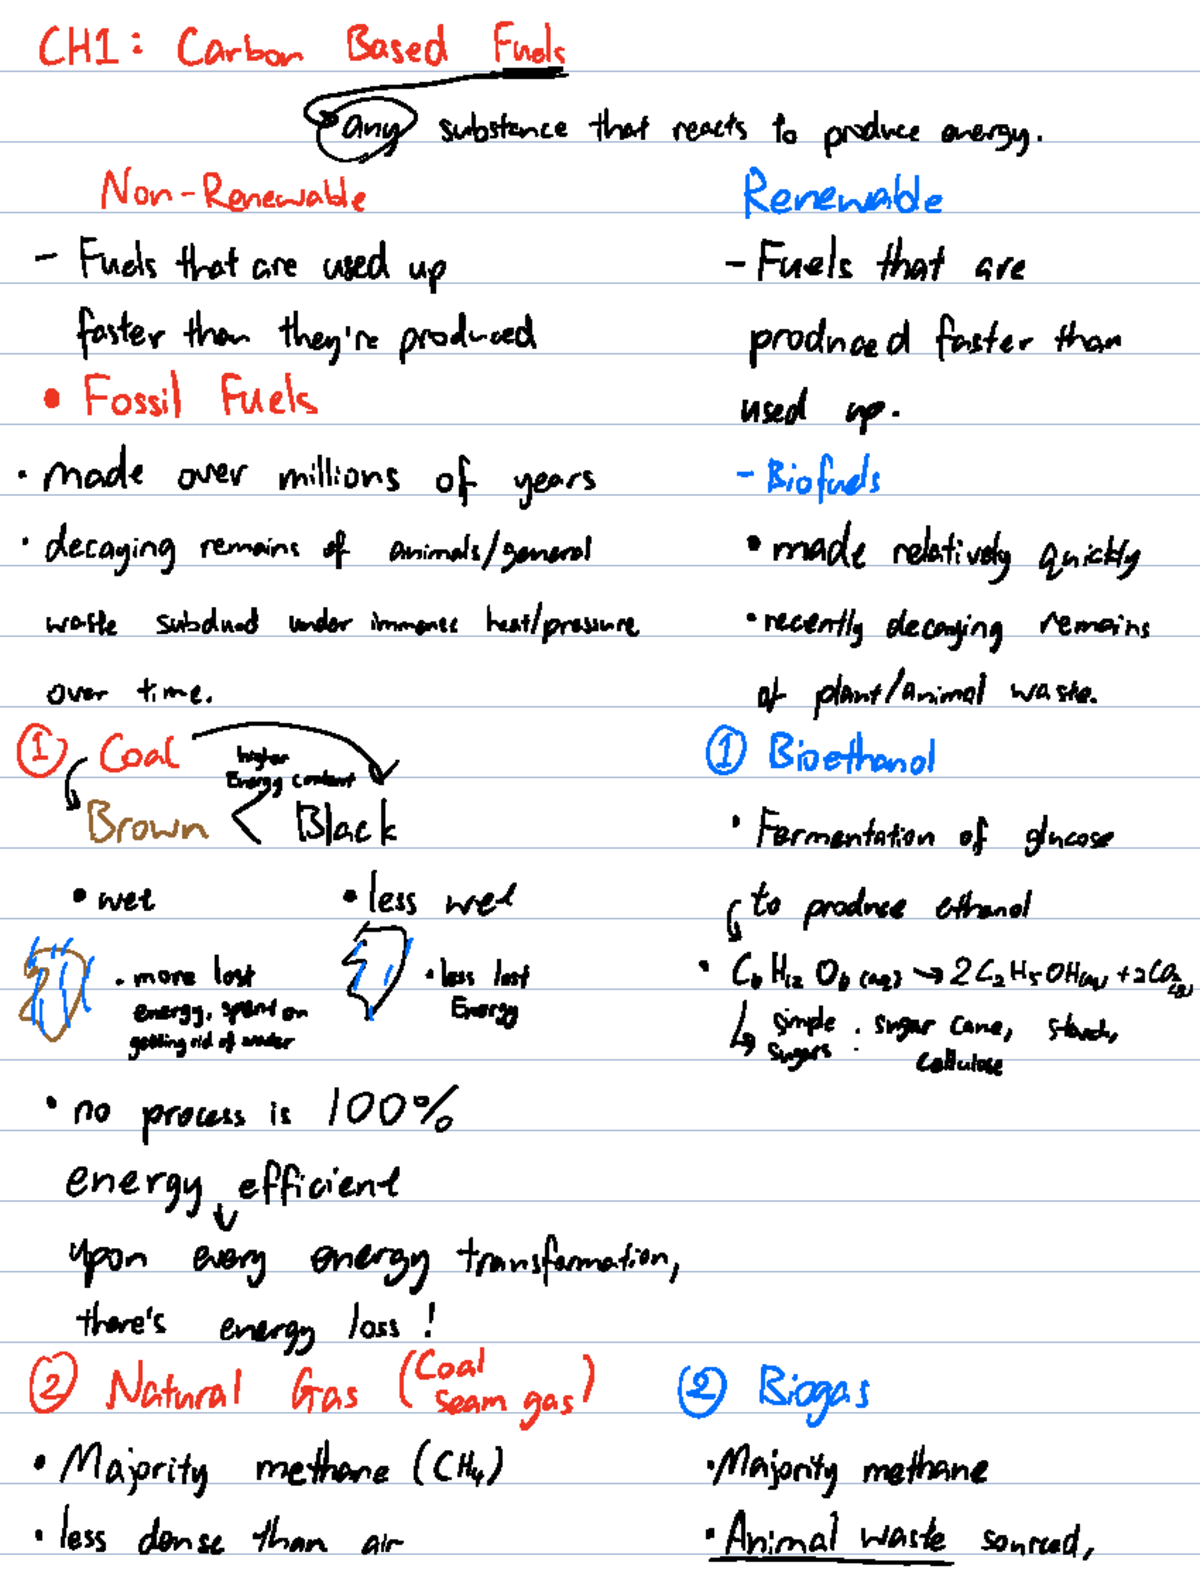 CH1: Carbon Based Fuels
any substance that reacts to produce energy.
Non-Renewable
- Fuels that are used up
faster than they're produced
• Fossil Fuels
• made over millions of years
• decaying remains of animals/general
waste subdued under immense heat/pressure
over time.
① Coal
higher
Energy content
Brown < Black
• wet
• less wet
• more lost
energy, spent on
getting rid of water
• less lost
Energy
• no process is 100%
energy efficient
upon every energy transformation,
there's energy loss!
② Natural Gas (Coal
seam gas)
• Majority methane (CH4)
• less dense than air
Renewable
- Fuels that are
produced faster than
used up.
- Biofuels
• made relatively quickly
• recently decaying remains
of plant/animal waste.
① Bioethanol
• Fermentation of glucose
to produce ethanol
• C6 H12 O6 (aq) → 2C2H5OH(aq) + 2CO2 (g)
simple : sugar cane, starch,
sugars cellulose
② Biogas
• Majority methane
• Animal waste sourced,